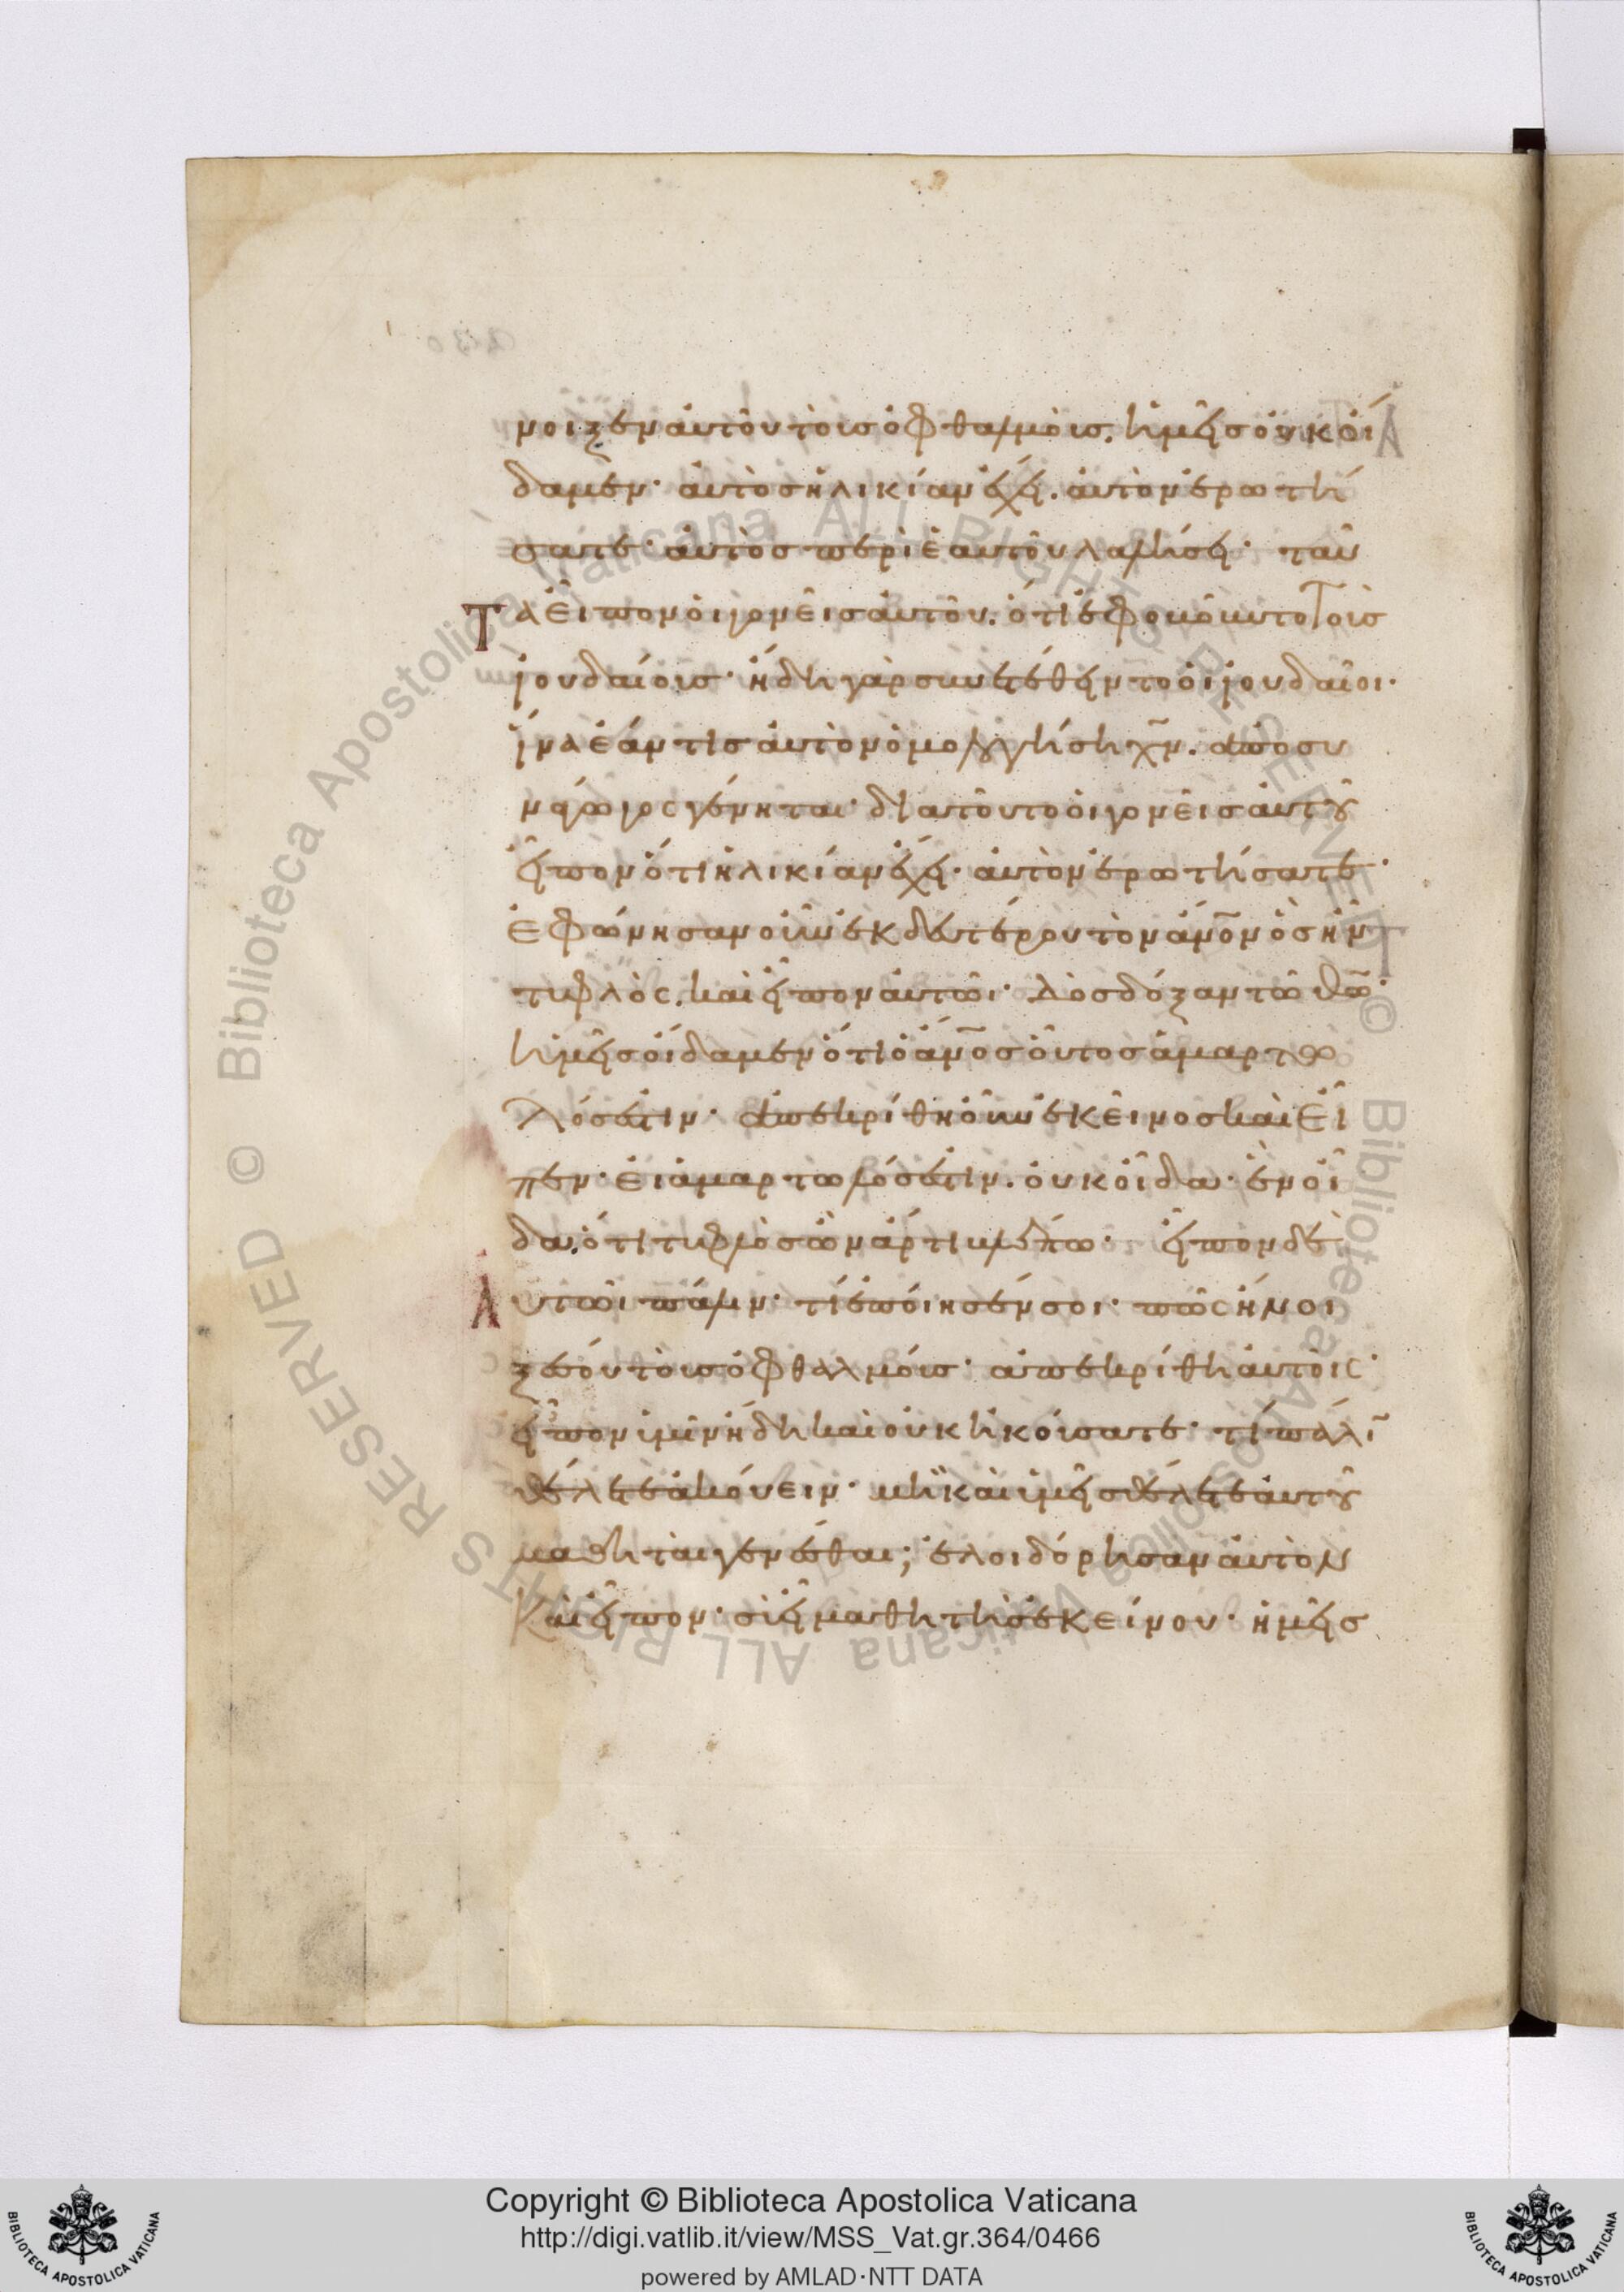 νοιξεν αὐτοῦ τοὺς ὀφθαλμοὺς. ἡμεῖς οὐκ οἴ
δαμεν· αὐτὸς ἡλικίαν ἔχει. αὐτὸν ἐρωτή
σατε· αὐτὸς περὶ ἑαυτοῦ λαλήσει· ταῦ
Τα εἶπον οἱ γονεῖς αὐτοῦ. ὅτι ἐφοβοῦντο τοὺς
ἰουδαίους· ἤδη γὰρ συνετέθειντο οἱ ἰουδαῖοι·
ἵνα ἐάν τις αὐτὸν ὁμολογήσῃ χν̄. ἀποσυ
νάγωγος γένηται· διατοῦτο οἱ γονεῖς αὐτοῦ
εἶπον ὅτι ἡλικίαν ἔχει· αὐτὸν ἐρωτήσατε·
ἐφώνησαν οὖν ἐκ δευτέρου τὸν ἄνο̄ν ὃς ἦν
τυφλὸς. καὶ εἶπον αὐτῶι· Δὸς δόξαν τῶ θω̄·
ἡμεῖς οἴδαμεν ὅτι ὁ ἄνο̄ς οὗτος ἁμαρτω
λός ἐστιν· ἀπεκρίθη οὖν ἐκεῖνος καὶ εἶ
πεν· εἰ ἁμαρτωλός ἐστιν. οὐκ οἶδα· ἓν οἶ
δα. ὅτι τυφλὸς ὢν ἄρτι βλέπω· εἶπον δὲ
Αὐτῶι πάλιν· τί ἐποίησέν σοι· πῶς ἤνοι
ξέ σου τοὺς ὀφθαλμούς· ἀπεκρίθη αὐτοῖς·
εἶπον ὑμῖν ἤδη καὶ οὐκ ἠκούσατε· τί πάλῑ
θέλετε ἀκούειν· μὴ καὶ ὑμεῖς θέλετε αὐτοῦ
μαθηταὶ γενέσθαι; ἐλοιδόρησαν αὐτὸν
Καὶ εἶπον· σὺ εἶ μαθητὴς ἐκείνου· ἡμεῖς
Copyright © Biblioteca Apostolica Vaticana
http://digi.vatlib.it/view/MSS_Vat.gr.364/0466
powered by AMLAD·NTT DATA
BIBLIOTECA APOSTOLICA VATICANA
BIBLIOTECA APOSTOLICA VATICANA
© Biblioteca Apostolica Vaticana ALL RIGHTS RESERVED
© Biblioteca Apostolica Vaticana ALL RIGHTS RESERVED